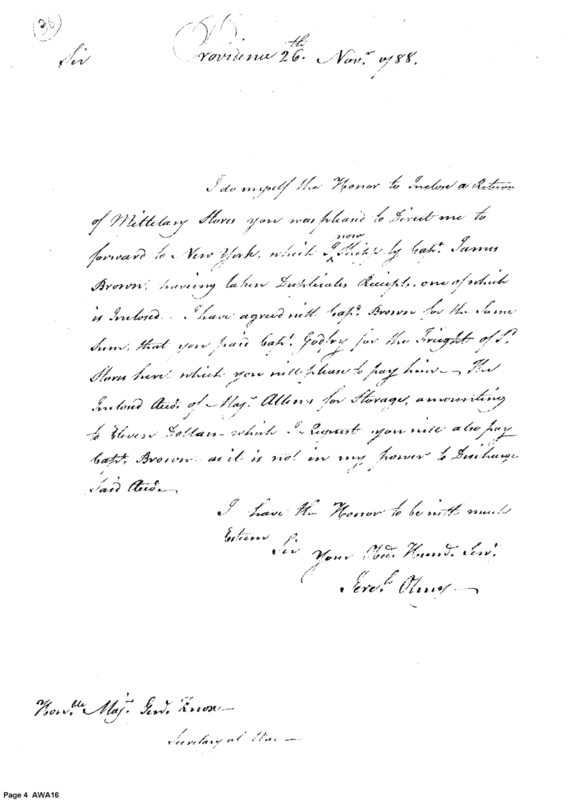 36
Providence 26.th Nov.r 1788.
Sir
I do myself the Honor to Inclose a Return
of Millelary Stores you was pleasd to Direct me to
forward to New York, which I now Shipd by Capt. James
Brown, having taken Duplicates Receipts, one of which
is Inclosed. I have agreed with Capt. Brown for the Same
Sum, that you paid Capt. Godfry for the Frieght of Sd.
Stores here which you will please to pay him — The
Inclosed Acct. of Majr. Allens for Storage, amounting
to Eleven Dollars which I Request you will also pay
Capt. Brown as it is not in my power to Discharge
Said Acct.
I have the Honor to be with much
Esteem
Sir Your Obd. Humb. Serv.
Jere.h Olney
Hon.ble Maj.r Genl. Knox
Secretary at War
Page 4 AWA16